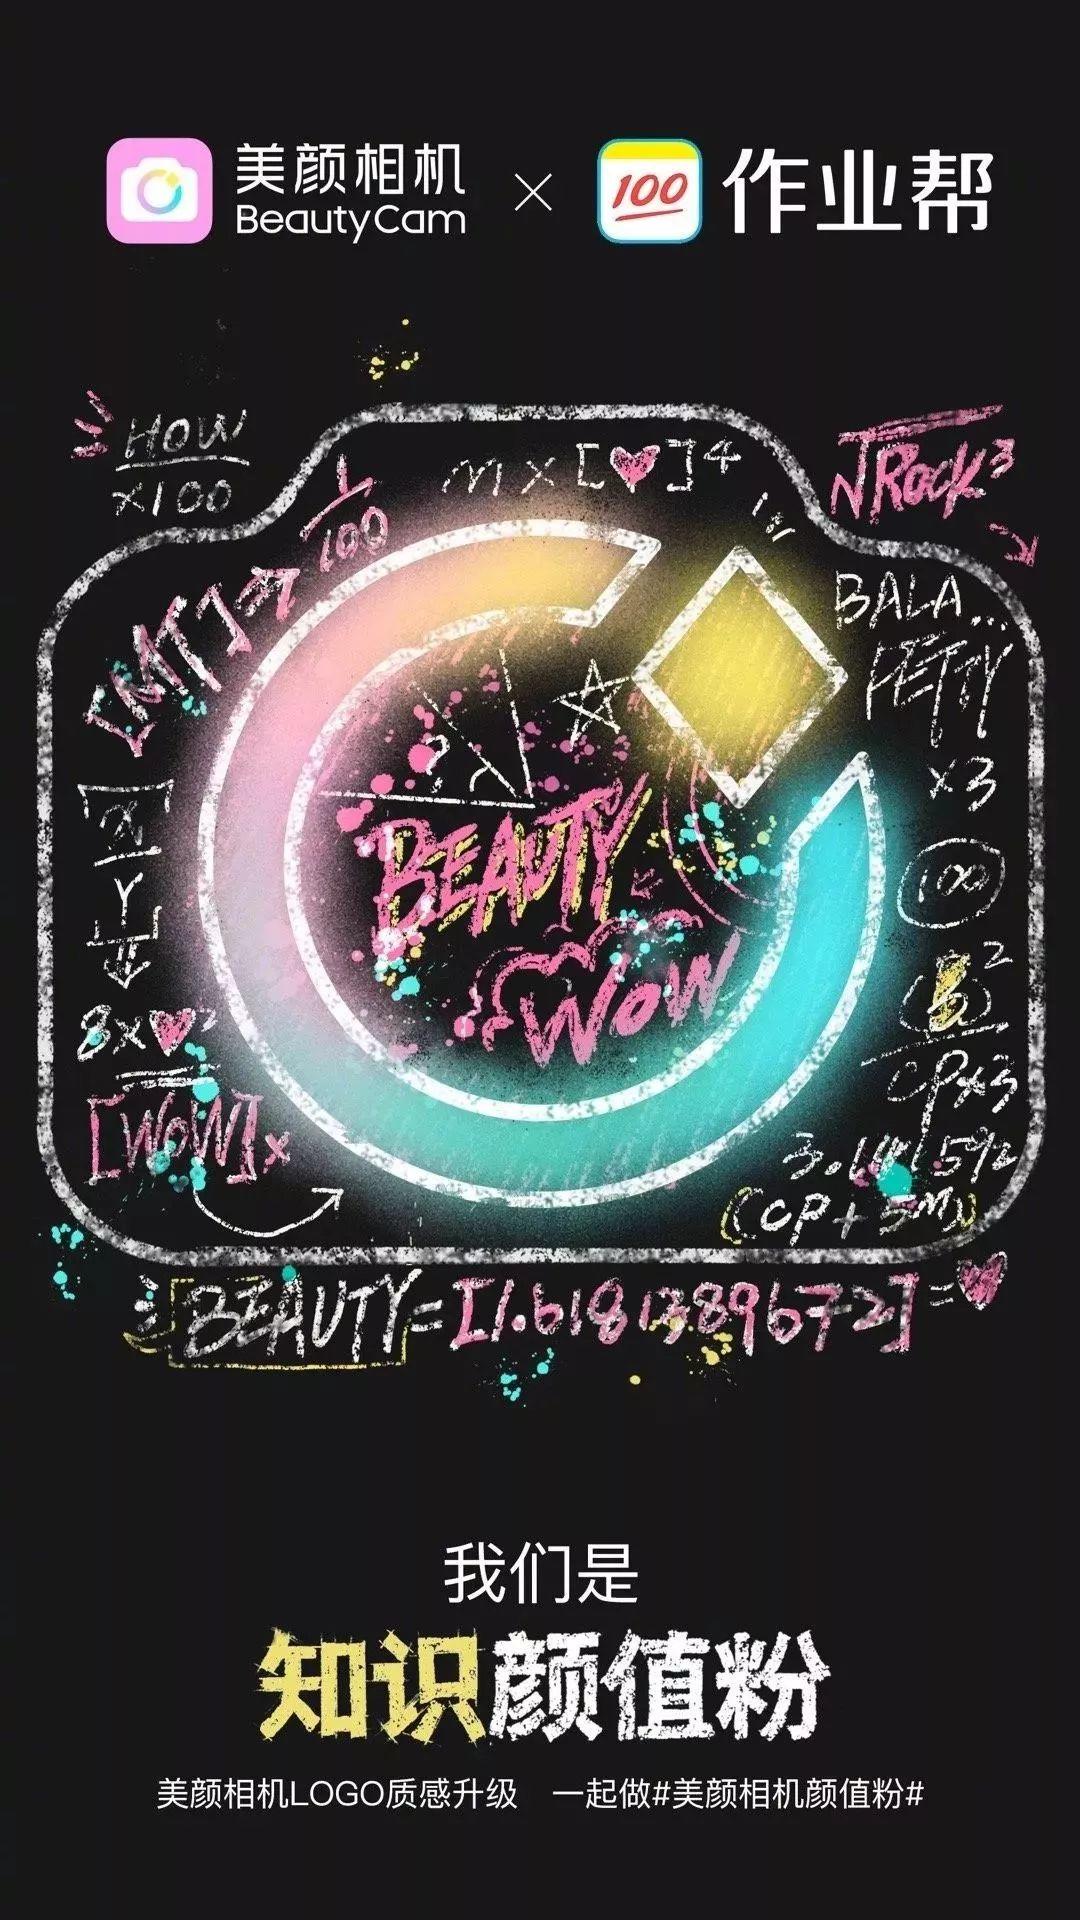 美颜相机
BeautyCam
×
100
作业帮
HOW
×100
1
100
m×[♥]4
√Rock3
BALA...
PETTY
×3
100
?
BEAUTY
WOW
8×♥
[WOW]×
B2
CP×3
3.141592
BEAUTY=[1.6181389672]=♥
我们是
知识颜值粉
美颜相机LOGO质感升级 一起做#美颜相机颜值粉#